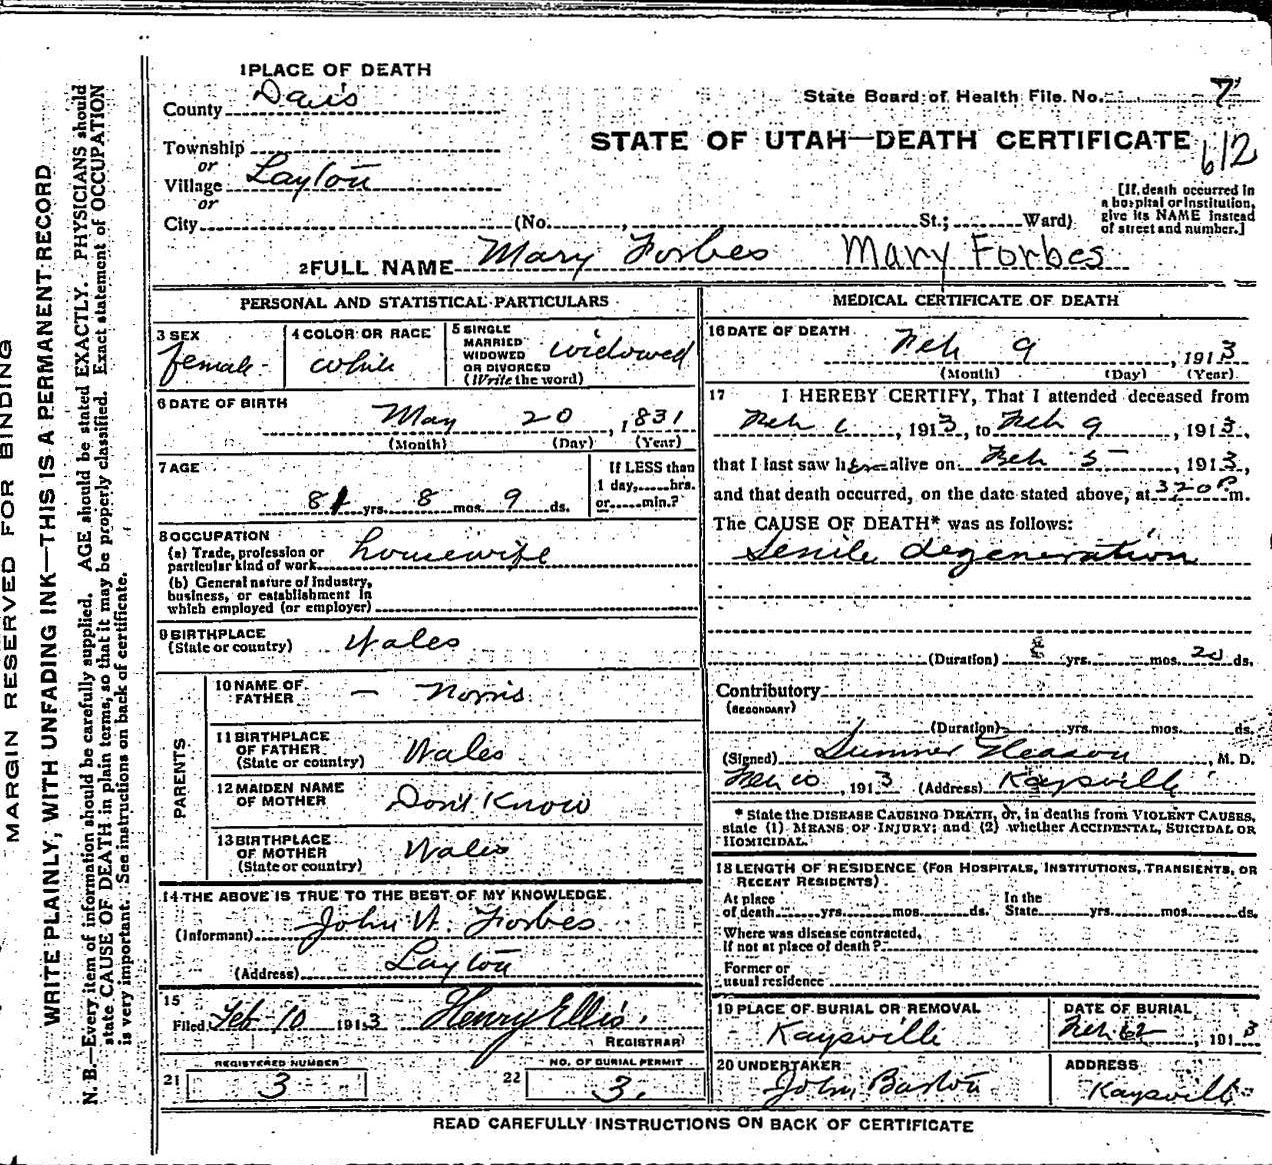 MARGIN RESERVED FOR BINDING
WRITE PLAINLY, WITH UNFADING INK—THIS IS A PERMANENT RECORD
N. B.—Every item of information should be carefully supplied. AGE should be stated EXACTLY. PHYSICIANS should
state CAUSE OF DEATH in plain terms, so that it may be properly classified. Exact statement of OCCUPATION
is very important. See instructions on back of certificate.
1 PLACE OF DEATH
County Davis
State Board of Health File No. 7
STATE OF UTAH—DEATH CERTIFICATE 612
Township
or
Village Layton
or
City (No. , St.; Ward)
[If death occurred in
a hospital or institution,
give its NAME instead
of street and number.]
2 FULL NAME Mary Forbes Mary Forbes
PERSONAL AND STATISTICAL PARTICULARS
3 SEX
female
4 COLOR OR RACE
white
5 SINGLE
MARRIED
WIDOWED
OR DIVORCED
(Write the word)
widowed
6 DATE OF BIRTH
May 20, 1831
(Month) (Day) (Year)
7 AGE
81 yrs. 8 mos. 9 ds.
If LESS than
1 day, hrs.
or min.?
8 OCCUPATION
(a) Trade, profession or
particular kind of work housewife
(b) General nature of Industry,
business, or establishment in
which employed (or employer)
9 BIRTHPLACE
(State or country) Wales
PARENTS
10 NAME OF
FATHER — Norris
11 BIRTHPLACE
OF FATHER
(State or country) Wales
12 MAIDEN NAME
OF MOTHER Don't Know
13 BIRTHPLACE
OF MOTHER
(State or country) Wales
14 THE ABOVE IS TRUE TO THE BEST OF MY KNOWLEDGE
(Informant) John W. Forbes
(Address) Layton
15
Filed Feb 10 1913 Henry Ellis.
REGISTRAR
REGISTERED NUMBER
21 3
NO. OF BURIAL PERMIT
22 3.
MEDICAL CERTIFICATE OF DEATH
16 DATE OF DEATH
Feb 9, 1913
(Month) (Day) (Year)
17 I HEREBY CERTIFY, That I attended deceased from
Feb , 1913, to Feb 9, 1913,
that I last saw her alive on Feb 5, 1913,
and that death occurred, on the date stated above, at 320 P m.
The CAUSE OF DEATH* was as follows:
Senile degeneration
(Duration) yrs. mos. 20 ds.
Contributory
(SECONDARY)
(Duration) yrs. mos. ds.
(Signed) Sumner Gleason, M. D.
Feb 10, 1913 (Address) Kaysville
* State the DISEASE CAUSING DEATH, or, in deaths from VIOLENT CAUSES,
state (1) MEANS OF INJURY; and (2) whether ACCIDENTAL, SUICIDAL OR
HOMICIDAL.
18 LENGTH OF RESIDENCE (FOR HOSPITALS, INSTITUTIONS, TRANSIENTS, OR
RECENT RESIDENTS)
At place
of death yrs. mos. ds.
In the
State yrs. mos. ds.
Where was disease contracted,
If not at place of death?
Former or
usual residence
19 PLACE OF BURIAL OR REMOVAL
Kaysville
DATE OF BURIAL
Feb 12, 1913
20 UNDERTAKER
John Barton
ADDRESS
Kaysville
READ CAREFULLY INSTRUCTIONS ON BACK OF CERTIFICATE